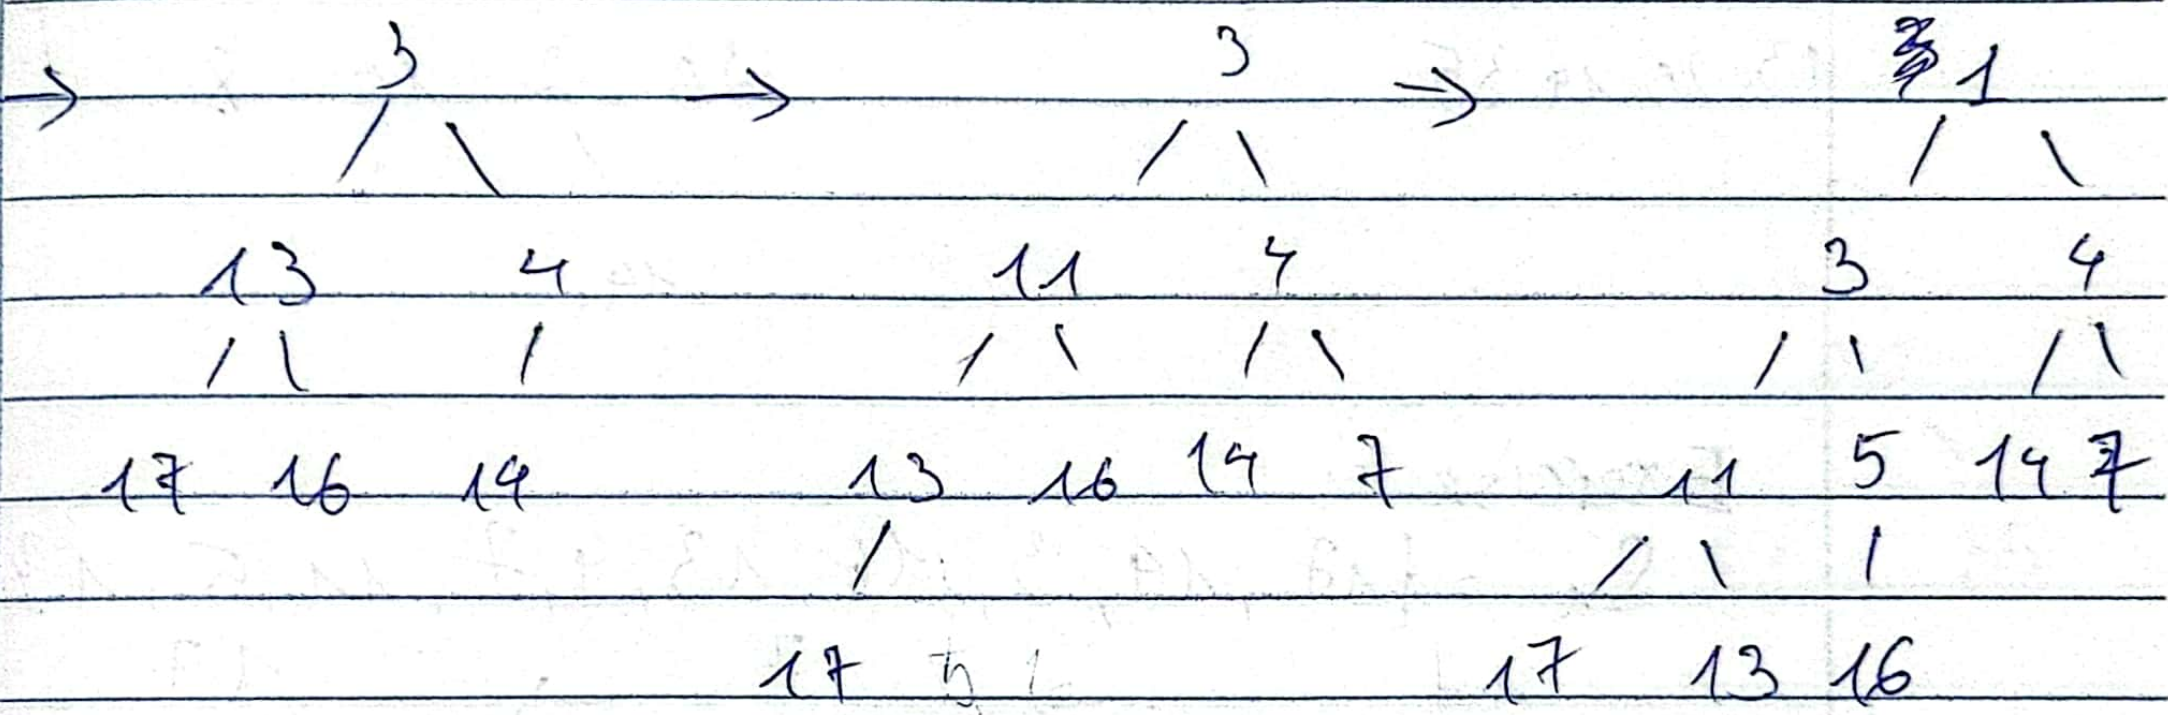 → 3 → 3 → 1
13 4 11 4 3 4
17 16 14 13 16 14 7 11 5 14 7
17 17 13 16